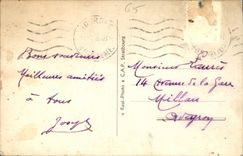 Bons souvenirs
Meilleures amitiés
à tous
Joseph
« Real-Photo » C.A.P. Strasbourg
Monsieur
14 Avenue de la Gare
Millau
Aveyron